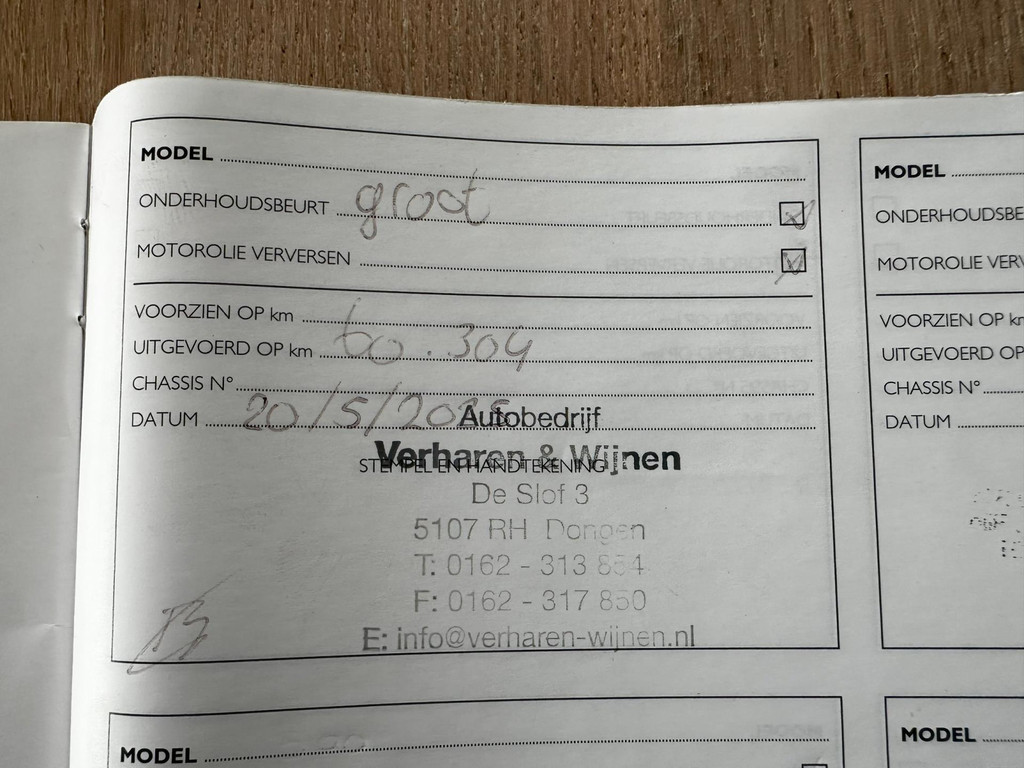 MODEL
ONDERHOUDSBEURT groot
MOTOROLIE VERVERSEN
VOORZIEN OP km
UITGEVOERD OP km 60.304
CHASSIS Nº
DATUM 20/5/20
Autobedrijf
Verharen & Wijnen
STEMPEL EN HANDTEKENING
De Slof 3
5107 RH Dongen
T: 0162 - 313 854
F: 0162 - 317 850
E: info@verharen-wijnen.nl
MODEL
ONDERHOUDSBE
MOTOROLIE VERV
VOORZIEN OP km
UITGEVOERD OP
CHASSIS Nº
DATUM
MODEL
MODEL